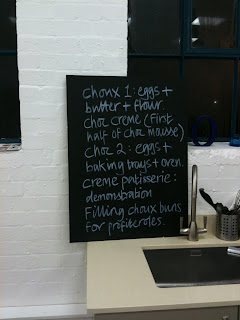 choux 1: eggs +
butter + flour.
choc creme (first
half of choc mousse)
choc 2: eggs +
baking trays + oven.
creme patisserie:
demonstration
Filling choux buns
for profiteroles.